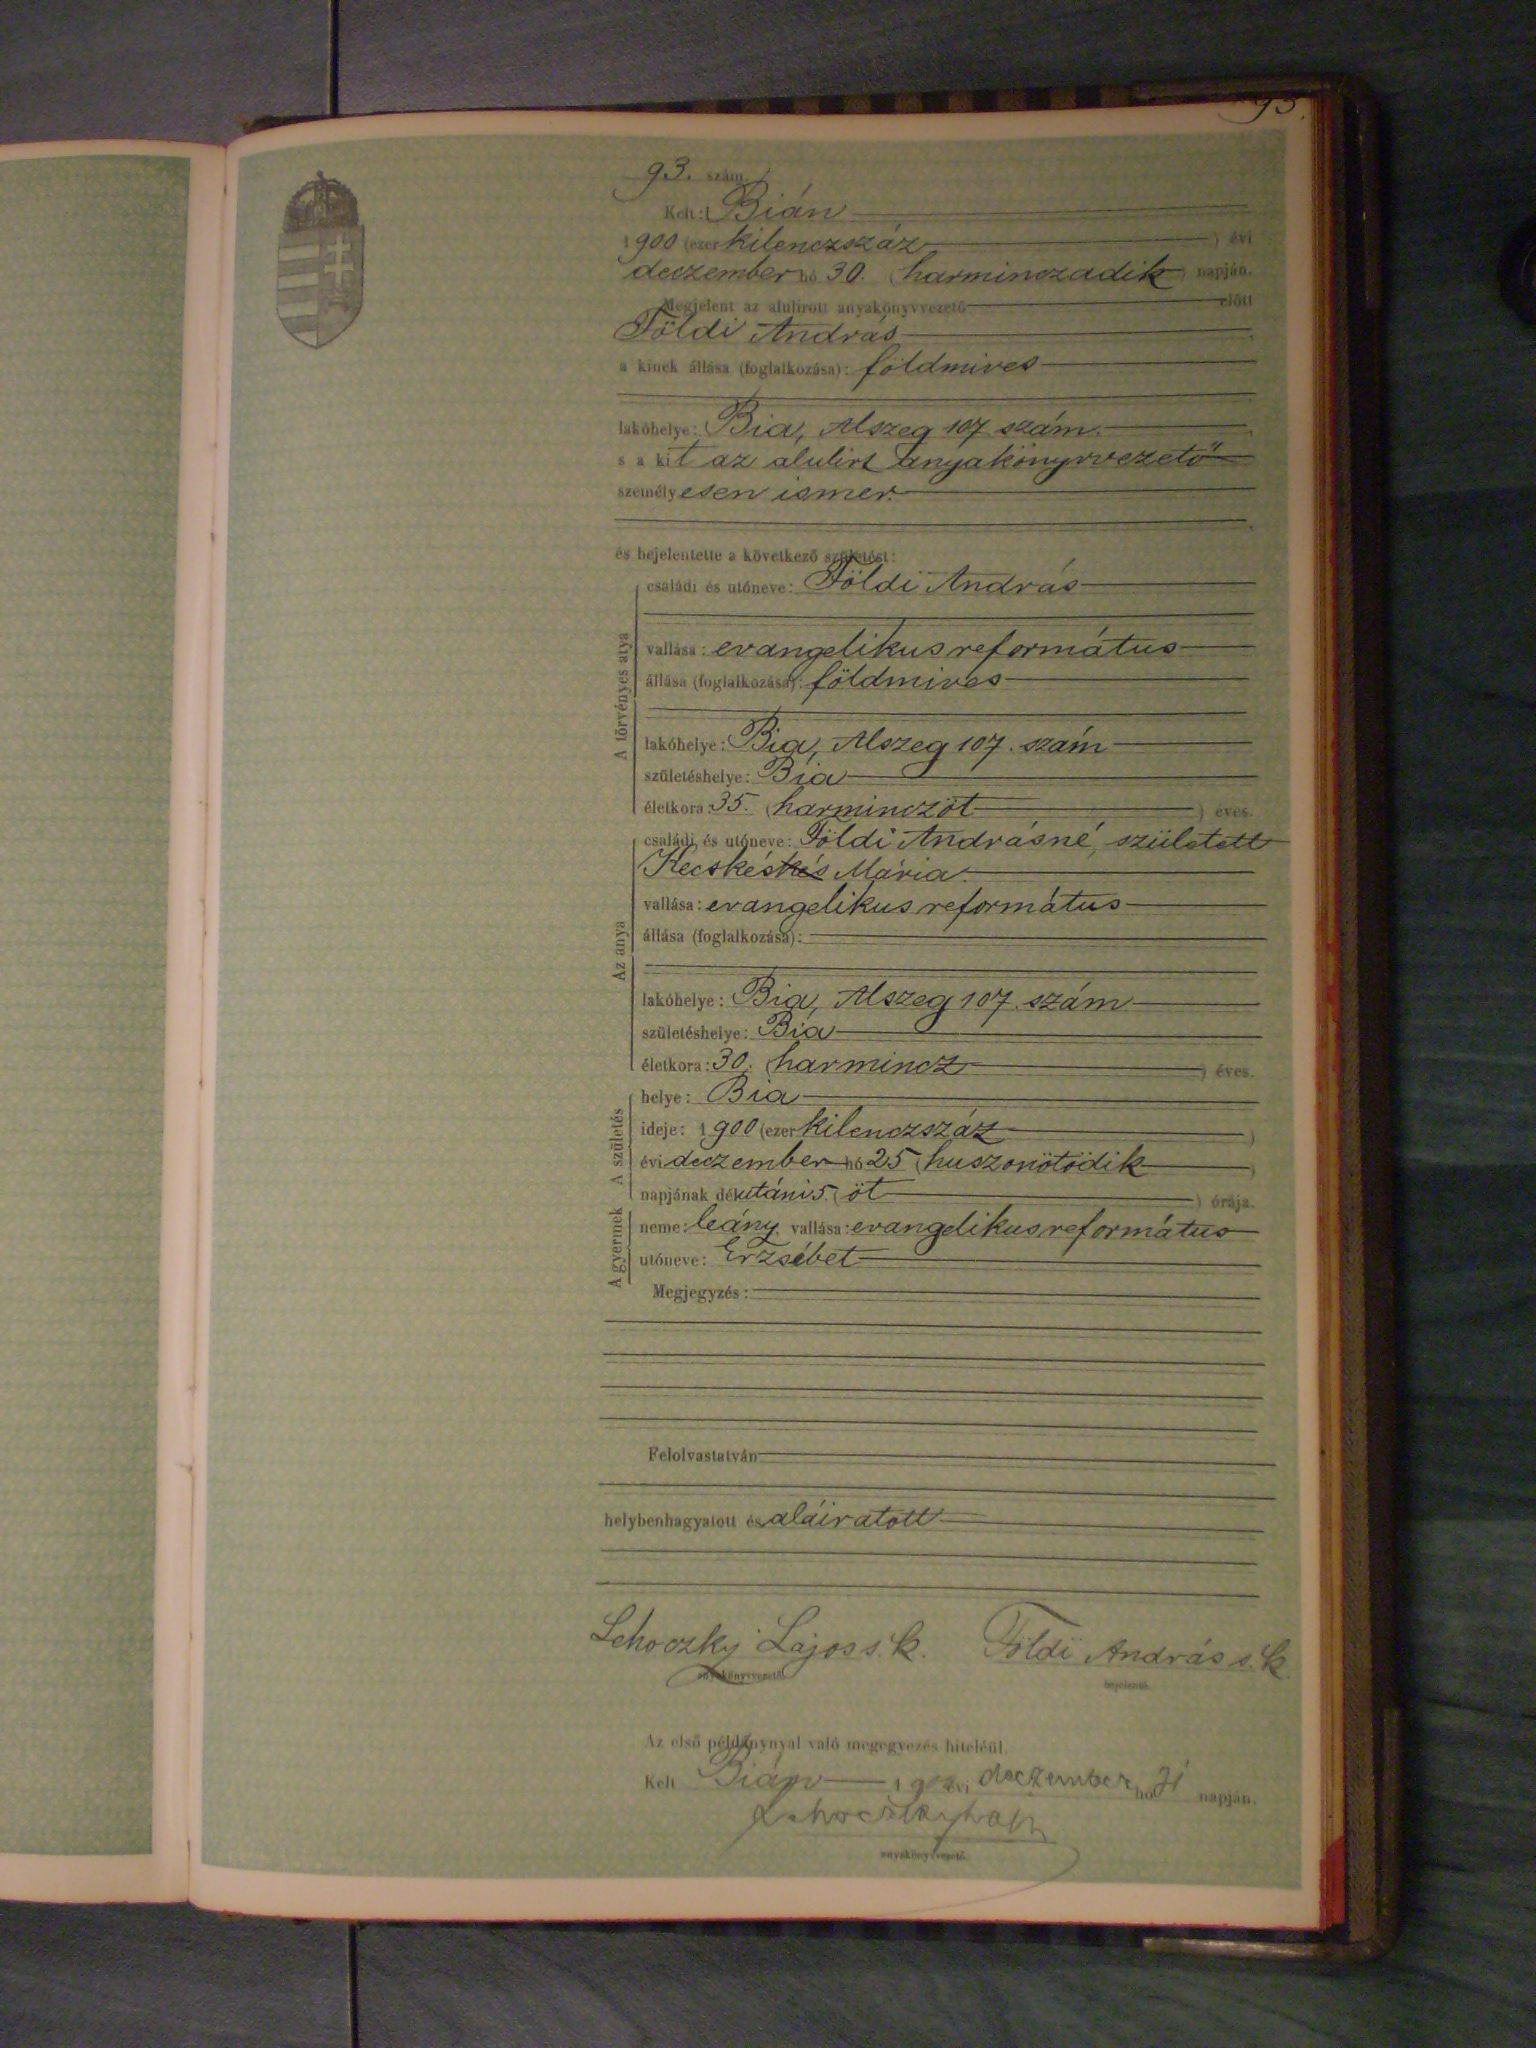 93.
93. szám.
Kelt: Bián
1900 (ezer kilenczszáz) évi
deczember hó 30. (harminczadik) napján.
Megjelent az alulirott anyakönyvvezető előtt
Földi András
a kinek állása (foglalkozása): földmives
lakóhelye: Bia, Alszeg 107. szám.
s a kit az alulirt anyakönyvvezető
személyesen ismer.
és bejelentette a következő születést:
A törvényes atya
családi és utóneve: Földi András
vallása: evangelikus református
állása (foglalkozása): földmives
lakóhelye: Bia, Alszeg 107. szám
születéshelye: Bia
életkora: 35. (harminczöt) éves.
Az anya
családi és utóneve: Földi Andrásné, született
Kecskéskés Mária
vallása: evangelikus református
állása (foglalkozása):
lakóhelye: Bia, Alszeg 107. szám
születéshelye: Bia
életkora: 30. (harmincz) éves.
A születés
helye: Bia
ideje: 1900 (ezer kilenczszáz)
évi deczember hó 25 (huszonötödik)
napjának délutáni 5. (öt) órája.
A gyermek
neme: leány, vallása: evangelikus református
utóneve: Erzsébet
Megjegyzés:
Felolvastatván
helybenhagyatott és aláiratott
Lehoczky Lajos s. k. Földi András s. k.
anyakönyvvezető. bejelentő.
Az első példánynyal való megegyezés hiteléül.
Kelt Bián 1900 évi deczember hó 31 napján.
anyakönyvvezető.